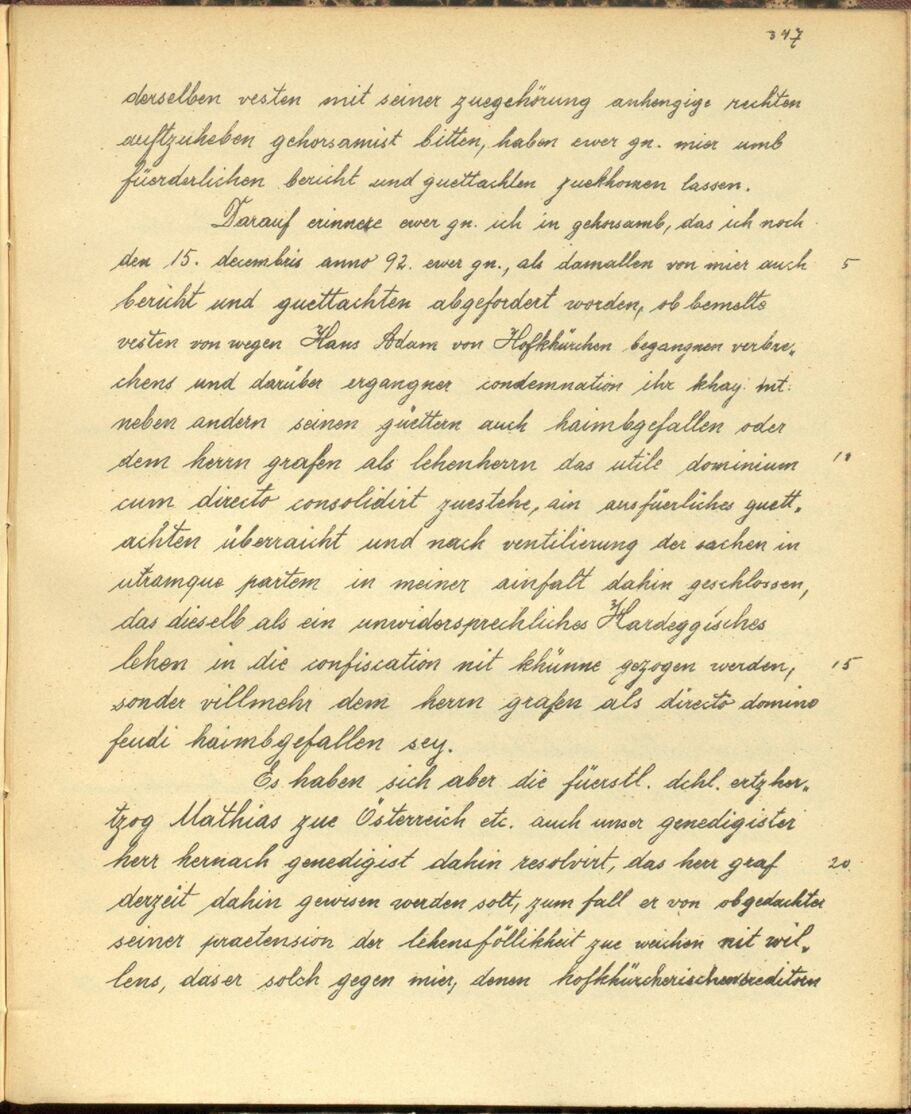 347
derselben vesten mit seiner zuegehörung anhengige rechten
auftzuheben gehorsamist bitten, haben ewer gn. mier umb
füerderlichen bericht und guettachten zuekhomen lassen.
Darauf erinnere ewer gn. ich in gehorsamb, das ich noch
den 15. decembris anno 92. ewer gn., als damallen von mier auch 5
bericht und guettachten abgefordert worden, ob bemelte
vesten von wegen Hans Adam von Hofkhürchen begangnen verbre„
chens und darüber ergangner condemnation ihr khay: mt.
neben andern seinen güettern auch haimbgefallen oder
dem herrn grafen als lehenherrn das utile dominium 10
cum directo consolidirt zuestehe, ain ausfüerliches guett„
achten überraicht und nach ventilierung der sachen in
utramque partem in meiner ainfalt dahin geschlossen,
das dieselb als ein unwidersprechliches Hardeggisches
lehen in die confiscation nit khünne gezogen werden, 15
sonder villmehr dem herrn grafen als directo domino
feudi haimbgefallen sey.
Es haben sich aber die füerstl. dchl. ertzher„
tzog Mathias zue Österreich etc. auch unser genedigister
herr hernach genedigist dahin resolvirt, das herr graf 20
derzeit dahin gewisen werden solt, zum fall er von obgedachter
seiner praetension der lehensföllikheit zue weichen nit wil„
lens, das er solch gegen mier, denen hofkhürcherischen creditorn